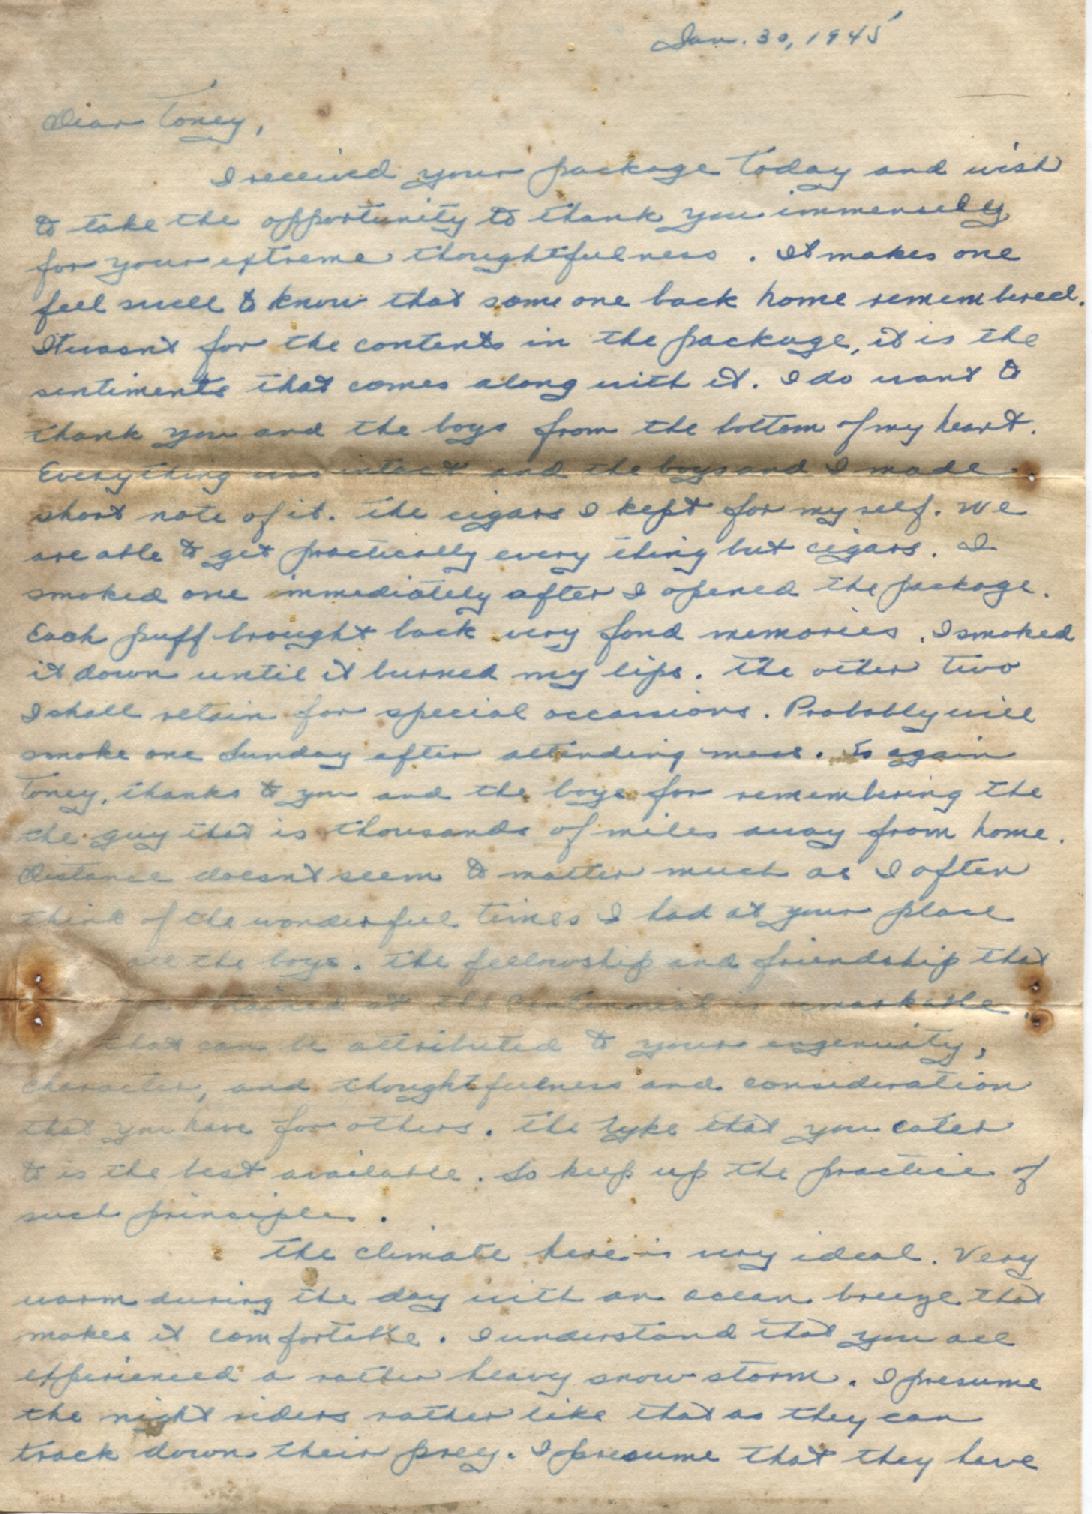 Jan. 30, 1945
Dear Toney,
I received your package today and wish
to take the opportunity to thank you immensely
for your extreme thoughtfulness. It makes one
feel swell to know that some one back home remembered.
It wasn't for the contents in the package, it is the
sentiments that comes along with it. I do want to
thank you and the boys from the bottom of my heart.
Everything was intact and the boys and I made
short note of it. The cigars I kept for my self. We
are able to get practically every thing but cigars. I
smoked one immediately after I opened the package.
Each puff brought back very fond memories. I smoked
it down until it burned my lips. The other two
I shall retain for special occassions. Probably will
smoke one Sunday after attending mass. So again
Toney, thanks to you and the boys for remembering the
the guy that is thousands of miles away from home.
Distance doesn't seem to matter much as I often
think of the wonderful times I had at your place
all the boys. The fellowship and friendship that
at the Centennial is remarkable.
that can be attributed to your engenuity,
character, and thoughtfulness and consideration
that you have for others. The type that you cater
to is the best available. So keep up the practice of
such principles.
The climate here is very ideal. Very
warm during the day with an ocean breeze that
makes it comfortable. I understand that you all
experienced a rather heavy snow storm. I presume
the night riders rather like that as they can
track down their prey. I presume that they have